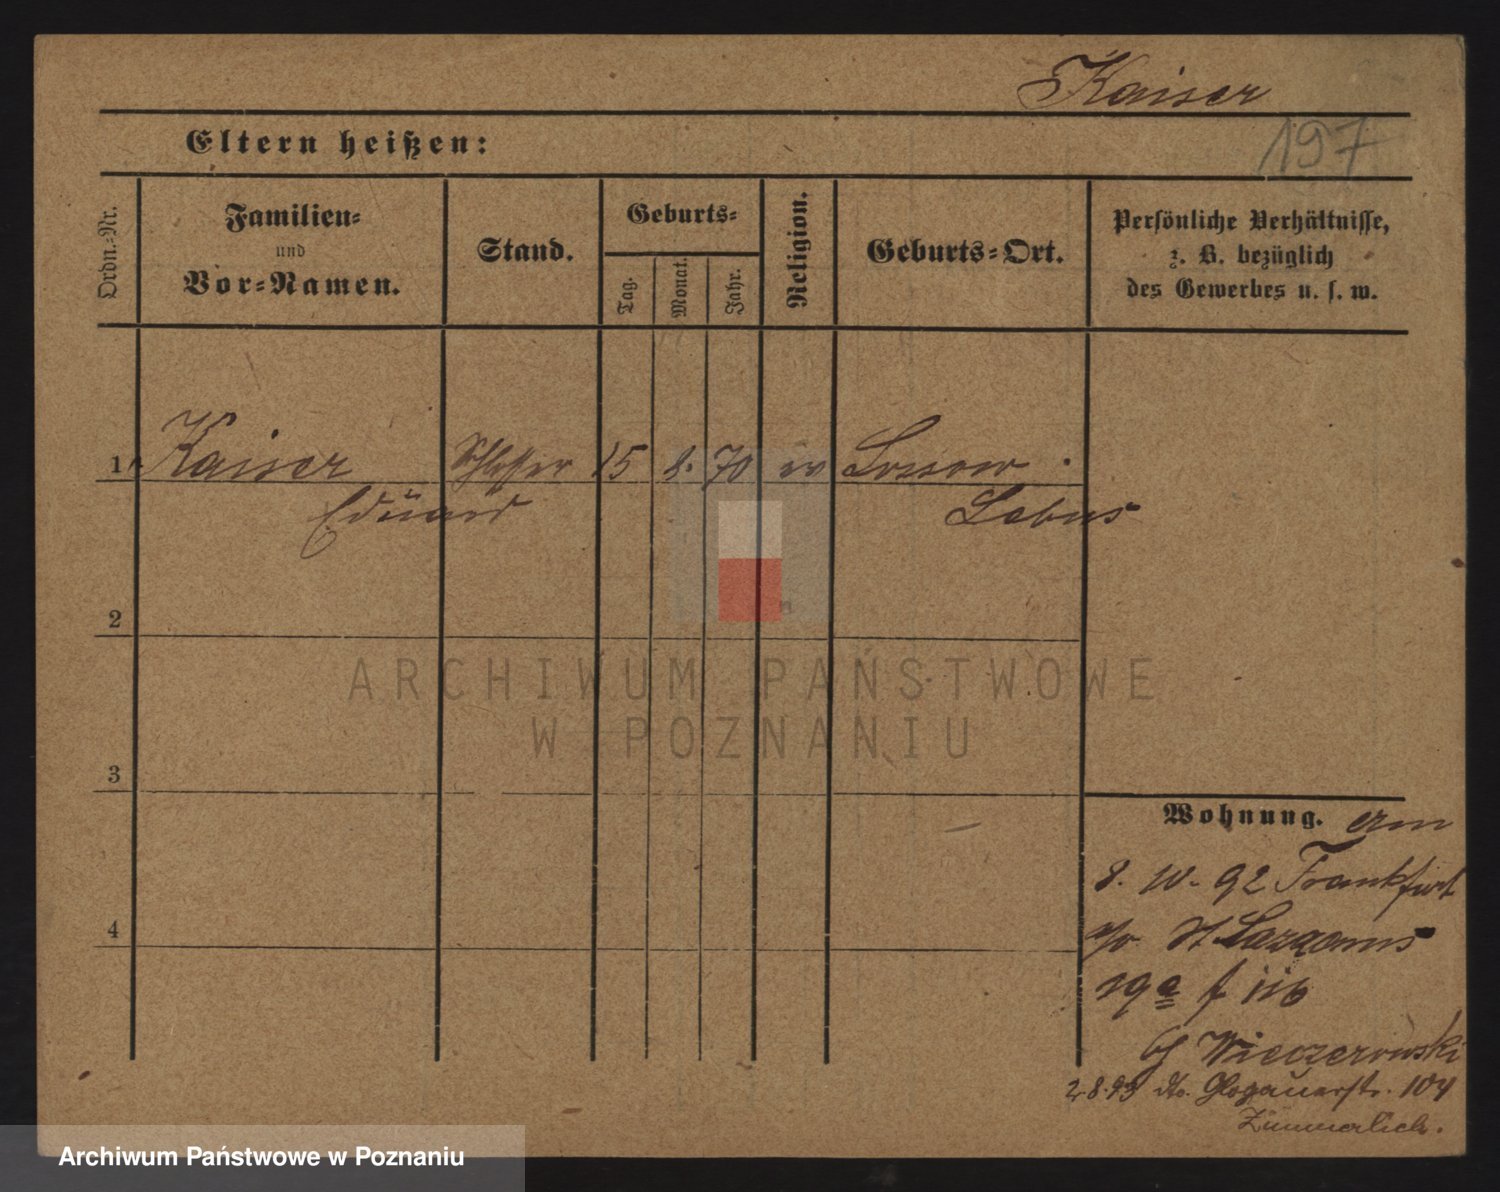 Kaiser
197
Eltern heißen:
Ordn.-Nr.
Familien-
und
Vor-Namen.
Stand.
Geburts-
Tag.
Monat.
Jahr.
Religion.
Geburts-Ort.
Persönliche Verhältnisse,
z. B. bezüglich
des Gewerbes u. s. w.
1 Kaiser Schlosser 15 8. 70 ev Lossow
Eduard Lebus
2
ARCHIWUM PAŃSTWOWE
W POZNANIU
3
Wohnung.
8. 10. 92 Frankfurt
a/o St Lazarus
19a
4
Wieczerowski
2.8.93 dto. Glogauerstr. 104
Zimmerlich.
Archiwum Państwowe w Poznaniu